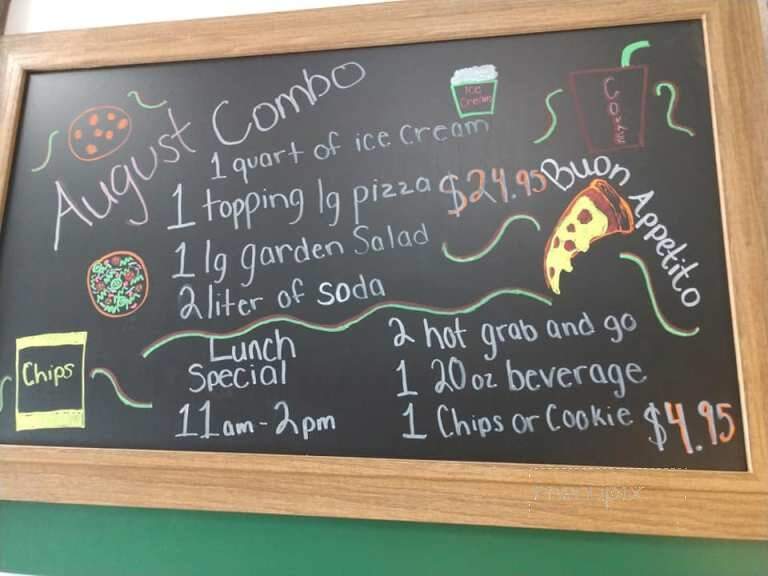 August Combo
1 quart of ice cream
1 topping lg pizza $24.95
1 lg garden Salad
2 liter of soda
Ice
Cream
Buon Appetito
Chips
Lunch
Special
11am-2pm
2 hot grab and go
1 20oz beverage
1 Chips or Cookie $4.95
menupix